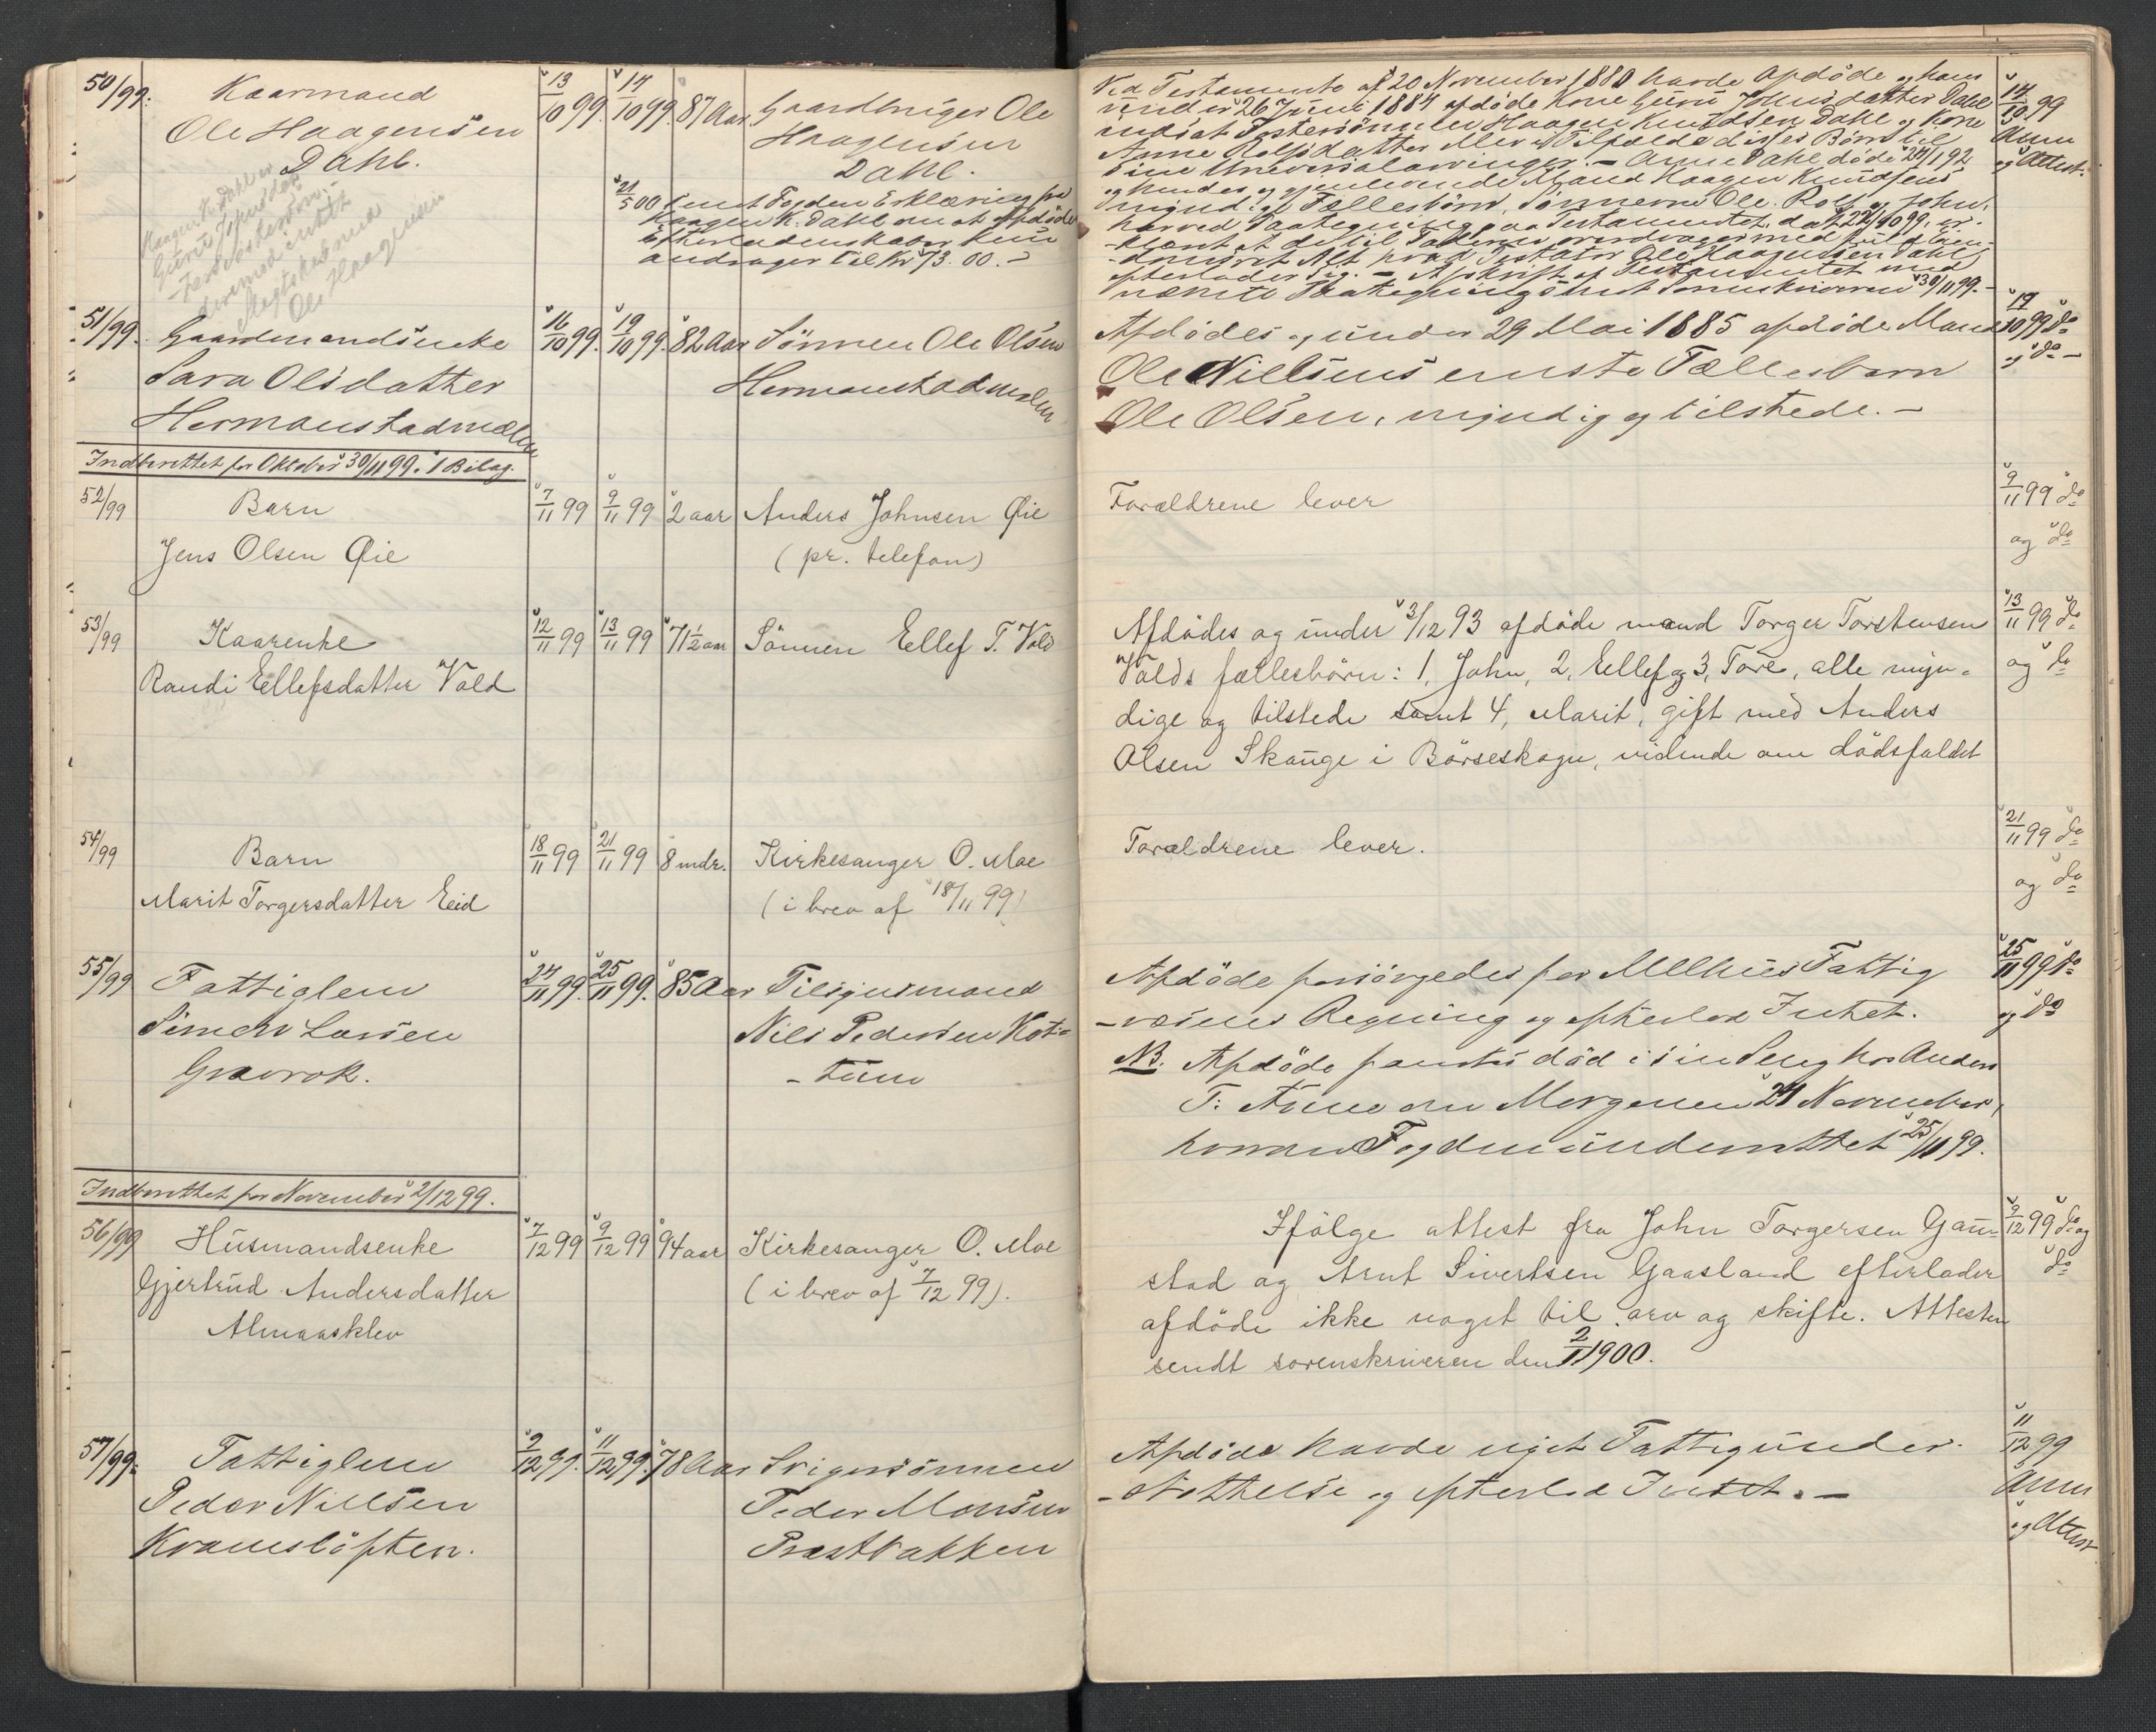 50/99.
Kaarmand
Ole Haagensen
Dahl.
13/10 99
14/10 99.
87 Aar
Gaardbruger Ole
Haagensen
Dahl.
21/5 00 sendt Fogden Erklæring fra
Haagen K. Dahl om at afdøde
Efterladenskaber kun
andrager til Kr 73.00.-
Haagen K. Dahl er
Guru Johnsdatter
Ole Haagensen
Ved Testamente af 20 November 1880 havde Afdøde og hans
under 26 Juni 1884 afdøde Kone Guru Johnsdatter Dahl
indsat Fostersønnen Haagen Knudsen Dahl og Kone
Anne Rolfsdatter eller i Tilfælde disses Børn til
sine Universalarvinger. - Anne Dahl døde 24/1 92
og hendes og gjenlevende Mand Haagen Knudsens
myndige Fællesbørn, Sønnerne Ole, Rolf og John,
har ved Paategning paa Testamentet, dat. 22/10 99, er-
klæret at de til Faderen overdrager med fuld Eien-
domsret Alt hvad Testator Ole Haagensen Dahl
efterlader sig. - Afskrift af Testamentet med
nævnte Paategning sendt Sorenskriveren 30/11 99.-
14/10 99
Anm
og Attest.
51/99.
Gaardmandsenke
Sara Olsdatter
Hermanstadmælen
16/10 99.
19/10 99.
82 Aar
Sønnen Ole Olsen
Hermanstadmælen
Afdødes og under 29 Mai 1885 afdøde Mand
Ole Nielsens eneste Fællesbarn
Ole Olsen, myndig og tilstede. -
19/10 99 do
og do -
Indberettet for Oktober 30/11 99. 1 Bilag.
52/99
Barn
Jens Olsen Øie
7/11 99
9/11 99
2 aar
Anders Johnsen Øie
(pr. telefon)
Forældrene lever
9/11 99 do
og do
53/99
Kaarenke
Randi Ellefsdatter Vold
12/11 99
13/11 99
71 1/2 aar
Sönnen Ellef T. Vold
Afdödes og under 3/12 93 afdöde mand Torger Torstensen
Volds fællesbörn: 1, John, 2, Ellef og 3, Tore, alle myn-
dige og tilstede samt 4, Marit, gift med Anders
Olsen Skauge i Börseskogn, vidende om dödsfaldet
13/11 99 do
og do
54/99
Barn
Marit Torgersdatter Eid
18/11 99
21/11 99
8 mdr.
Kirkesanger O. Moe
(i brev af 18/11 99)
Forældrene lever.
21/11 99 do
og do
55/99
Fattiglem
Simon Larsen
Gravrok.
24/11 99.
25/11 99.
85 Aar
Tilsynsmand
Nils Pedersen Kot-
-tum
Afdøde forsørgedes for Melhus Fattig
-væsens Regning og efterlod Intet.
NB. Afdøde fandtes død i sin Seng hos Anders
T. Aune om Morgenen 24 November,
hvorom Fogden underrettet 25/11 99.
25/11 99 do
og do
Indberettet for November 2/12 99.
56/99
Husmandsenke
Gjertrud Andersdatter
Almaasklev
7/12 99
9/12 99
94 aar
Kirkesanger O. Moe
(i brev af 7/12 99).
Ifölge attest fra John Torgersen Gau-
stad og Arnt Sivertsen Gaasland efterlader
afdöde ikke noget til arv og skifte. Attesten
sendt sorenskriveren den 2/1 1900.
9/12 99 do og
do
57/99.
Fattiglem
Peder Nielsen
Kramsløften.
9/12 99.
11/12 99.
78 Aar
Svigersønnen
Peder Monsen
Præstbakken
Afdøde havde nydt Fattigunder-
-støttelse og efterlod Intet. -
11/12 99
Anm
og Attest